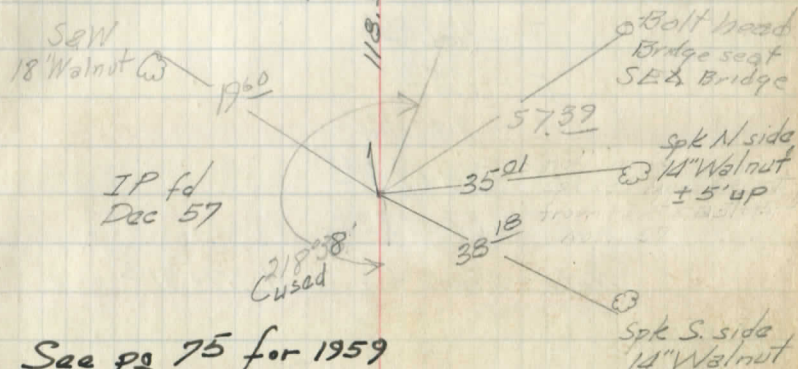 118.
S&W
18"Walnut
19 60
Bolt head
Bridge seat
SE∠ Bridge
57.39
Spk N side
14"Walnut
± 5' up
35 01
IP fd
Dec 57
38 18
218°38'
C used
Spk S. side
14"Walnut
See pg 75 for 1959